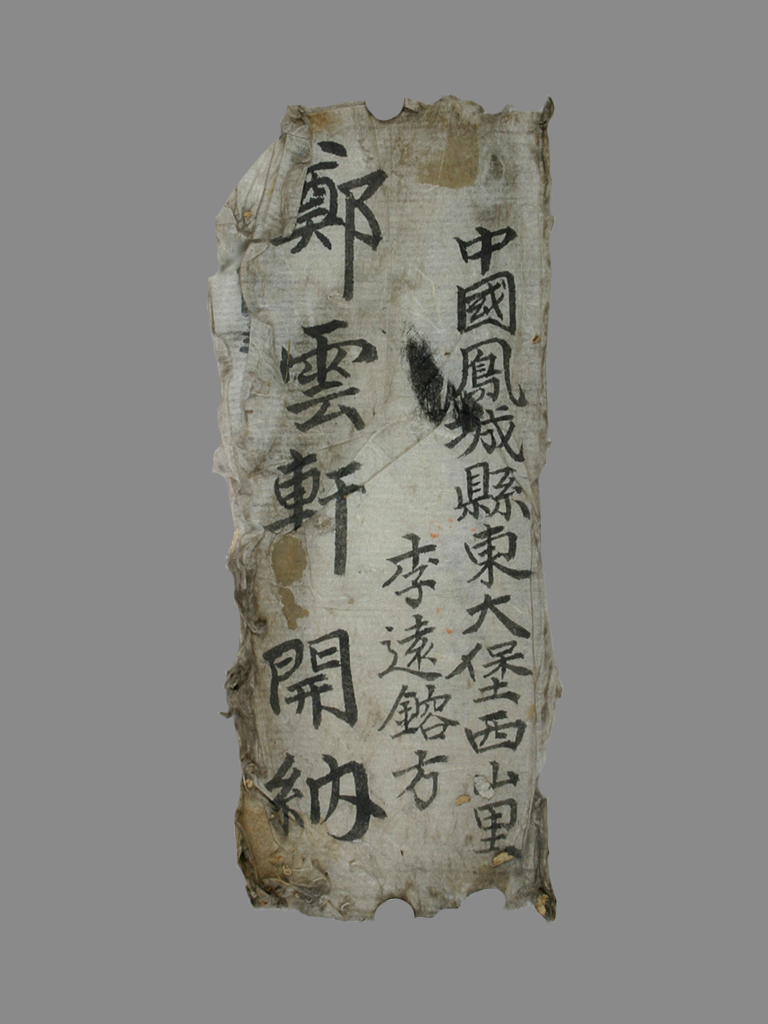 中國鳳城縣東大堡西山里
李遠鎔方
鄭雲軒 開納